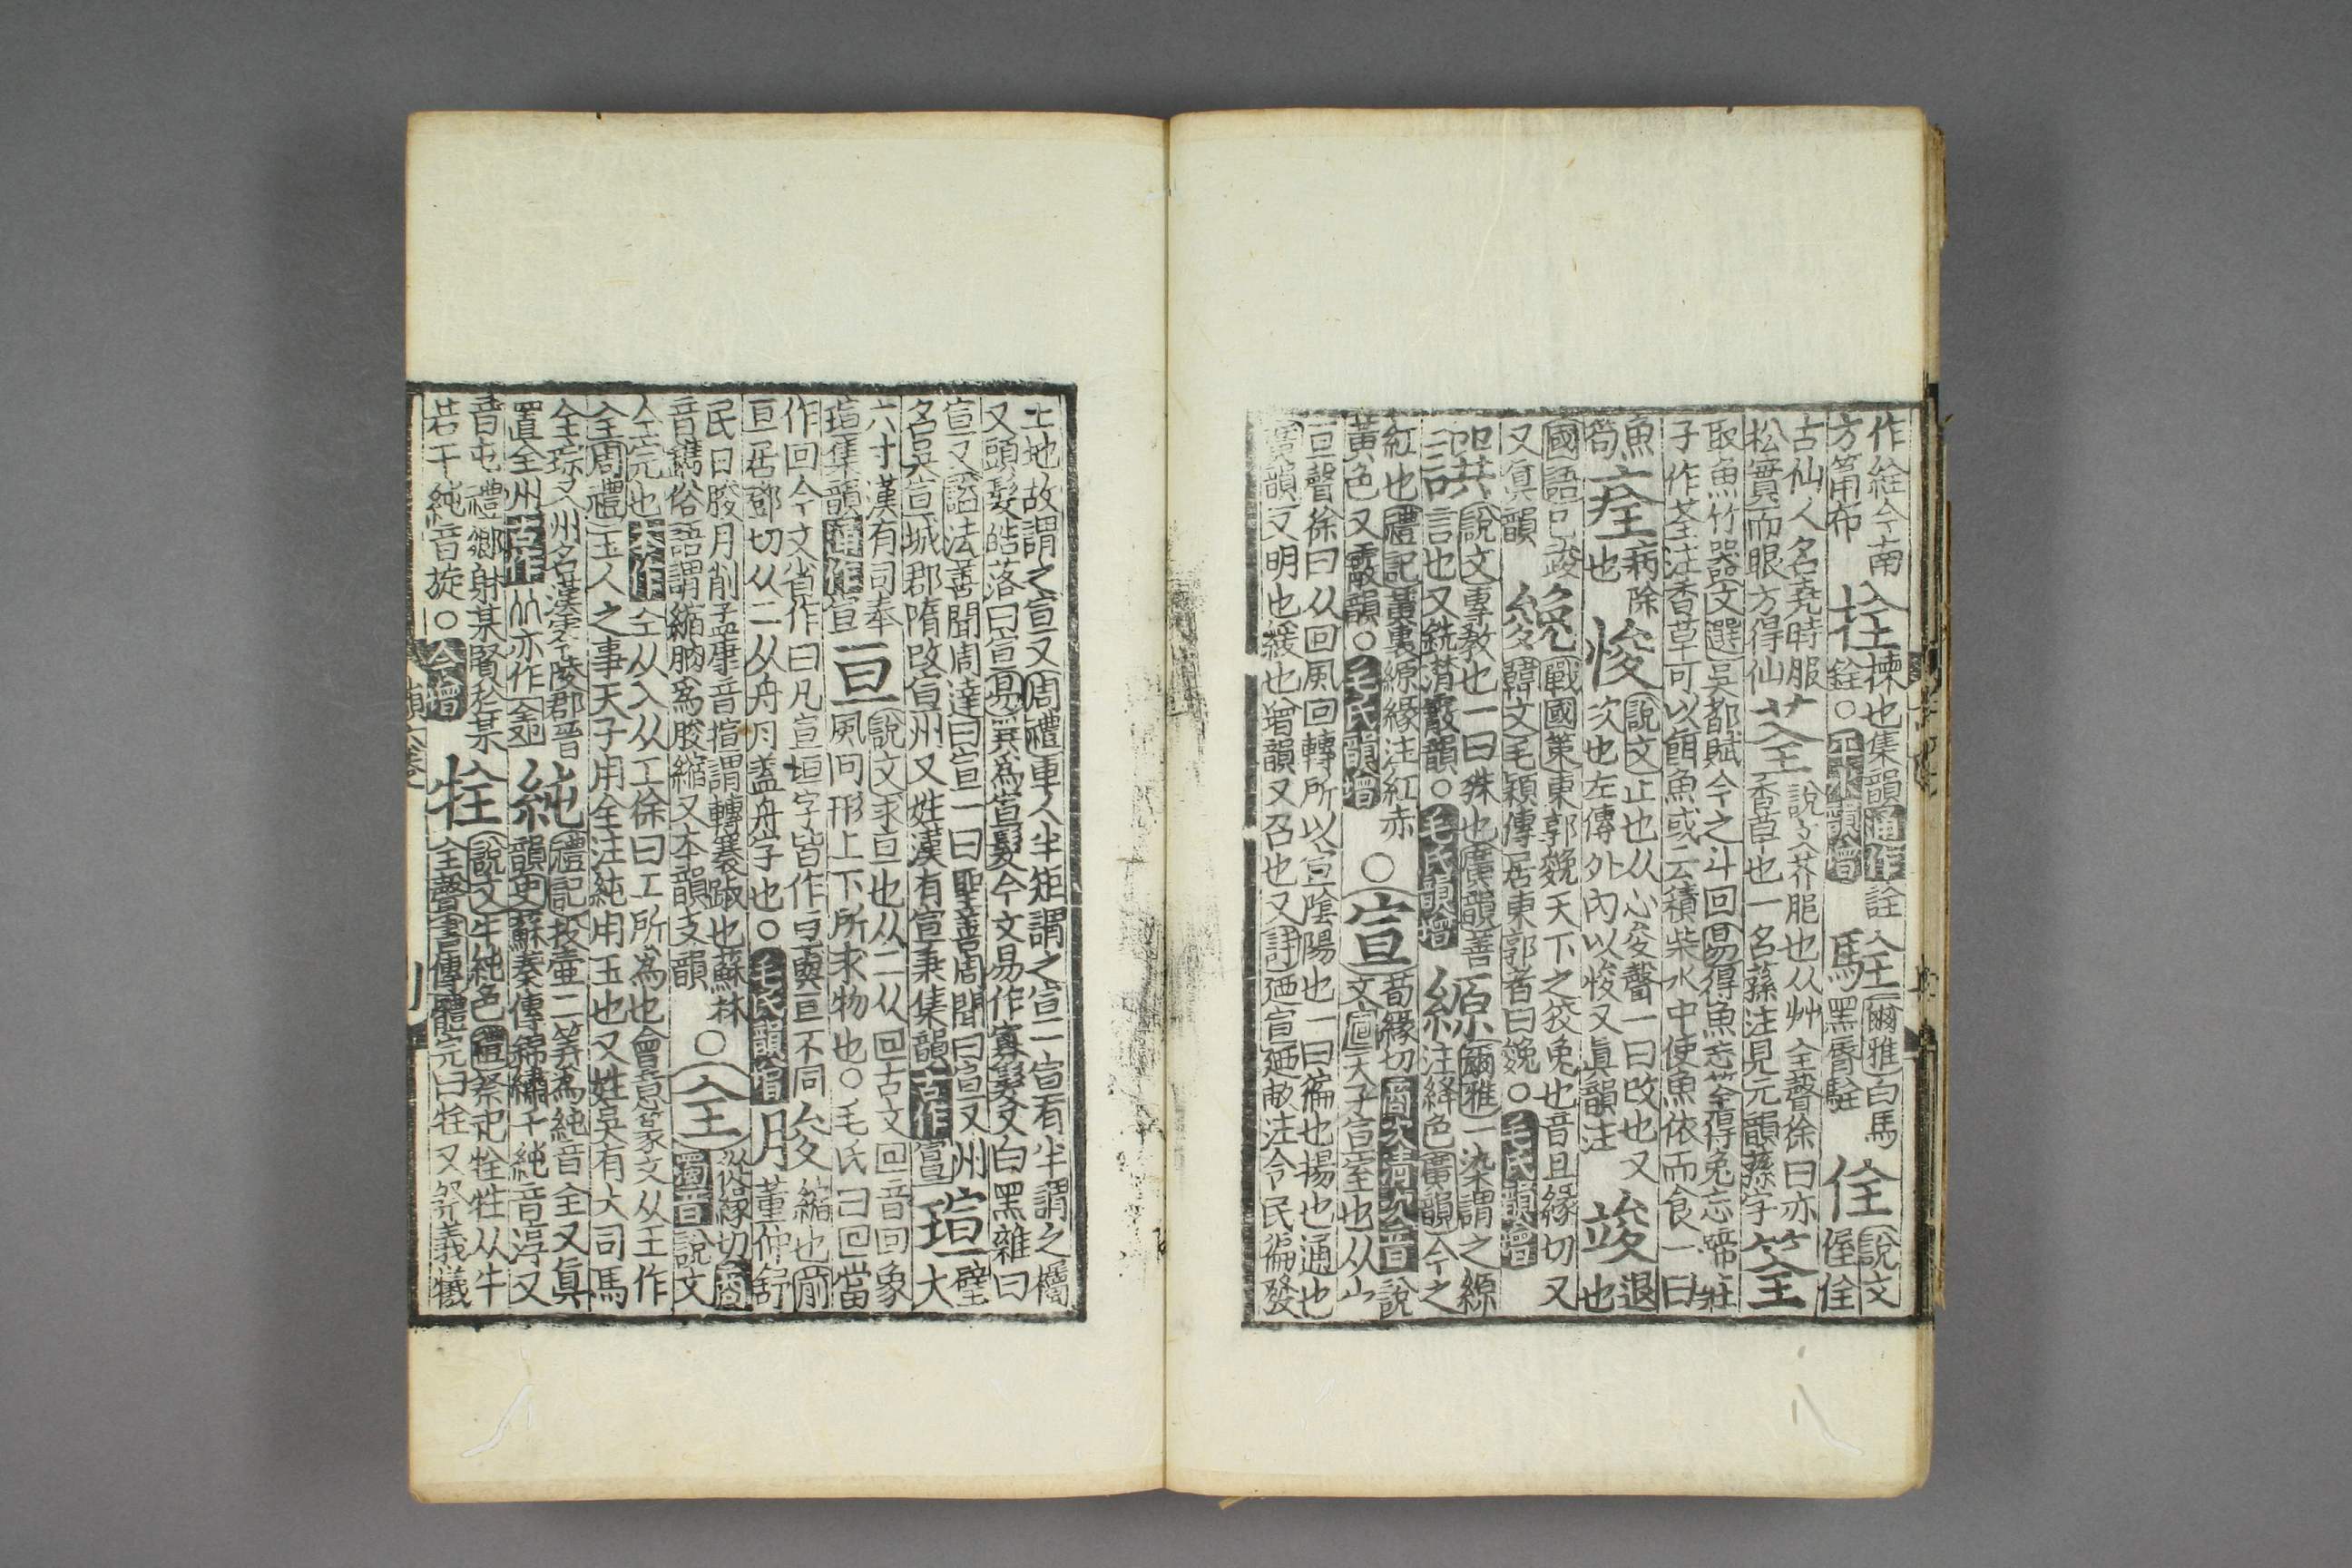 作絟今南方筩布拴揀也集韻通作詮銓○平水韻增駩爾雅白馬黑脣駩佺說文偓佺
古仙人名堯時服松實而眼方得仙荃說文芥脃也从艸全聲徐曰亦香草也一名蓀注見元韻蓀字筌
取魚竹器文選吳都賦今之斗回易得魚忘筌得兔忘蹄莊子作荃注香草可以餌魚或云積柴水中使魚依而食一曰
魚笱痊病除也悛說文止也从心夋聲一曰改也又次也左傳外內以悛又眞韻注竣退也
國語已竣又眞韻㕙戰國策東郭㕙天下之狡兔也音且緣切又韓文毛穎傳居東郭者曰㕙○毛氏韻增
譔說文專敎也一曰殊也廣韻善言也又銑潸霰韻○毛氏韻增縓爾雅一染謂之縓注絳色廣韻今之
紅也禮記黃裏縓緣注紅赤黃色又霰韻○毛氏韻增○宣荀緣切商次清次音說文宣天子宣室也从宀
亘聲徐曰从回風回轉所以宣陰陽也一曰徧也揚也通也廣韻又明也緩也增韻又召也又詩迺宣迺畝注令民徧發
土地故謂之宣又周禮車人半矩謂之宣一宣有半謂之欘又頭髮皓落曰宣易巽爲宣髮今文易作寡髮又白黑雜曰
宣又謚法善聞周達曰宣一曰聖善周聞曰宣又州名吳宣城郡隋改宣州又姓漢有宣秉集韻古作瑄璧大
六寸漢有司奉瑄集韻通作宣亘說文求亘也从二从囘古文回音回象風回形上下所求物也○毛氏曰囘當
作回今文省作曰凡宣垣字皆作亘與亙不同亙居鄧切从二从舟月蓋舟字也○毛氏韻增朘縮也前董仲舒
民日朘月削孟康音揎謂轉褰踧也蘇林音鐫俗語謂縮朒爲朘縮又本韻支韻○全從緣切商濁音說文
仝完也本作仝从入从工徐曰工所爲也會意篆文从王作全周禮玉人之事天子用全注純用玉也又姓吳有大司馬
全琮又州名漢零陵郡晉置全州古作亦作純禮記投壺二筭爲純音全又眞韻史蘇秦傳錦繡千純音淳又
音屯禮鄉射某賢於某若干純音旋○今增牷說文牛純色禮祭祀牷牲从牛全聲書傳體完曰牷又祭義犧